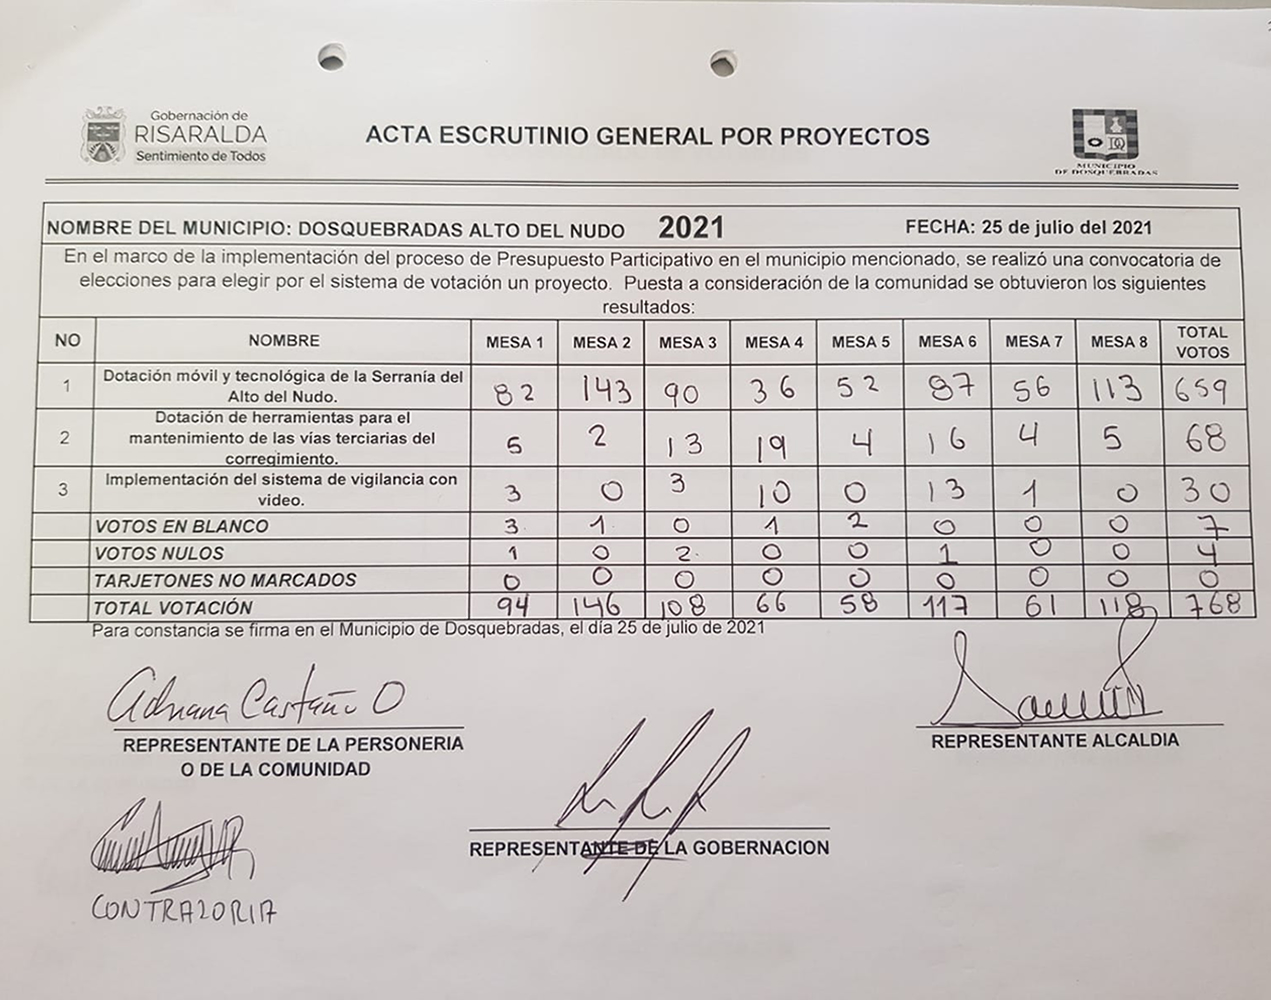 Gobernación de
RISARALDA
Sentimiento de Todos
ACTA ESCRUTINIO GENERAL POR PROYECTOS
MUNICIPIO
DE DOSQUEBRADAS
NOMBRE DEL MUNICIPIO: DOSQUEBRADAS ALTO DEL NUDO 2021 FECHA: 25 de julio del 2021
En el marco de la implementación del proceso de Presupuesto Participativo en el municipio mencionado, se realizó una convocatoria de
elecciones para elegir por el sistema de votación un proyecto. Puesta a consideración de la comunidad se obtuvieron los siguientes
resultados:
NO NOMBRE MESA 1 MESA 2 MESA 3 MESA 4 MESA 5 MESA 6 MESA 7 MESA 8 TOTAL
VOTOS
1 Dotación móvil y tecnológica de la Serranía del
Alto del Nudo. 82 143 90 36 52 87 56 113 659
2 Dotación de herramientas para el
mantenimiento de las vías terciarias del
corregimiento. 5 2 13 19 4 16 4 5 68
3 Implementación del sistema de vigilancia con
video. 3 0 3 10 0 13 1 0 30
VOTOS EN BLANCO 3 1 0 1 2 0 0 0 7
VOTOS NULOS 1 0 2 0 0 1 0 0 4
TARJETONES NO MARCADOS 0 0 0 0 0 0 0 0 0
TOTAL VOTACIÓN 94 146 108 66 58 117 61 118 768
Para constancia se firma en el Municipio de Dosquebradas, el día 25 de julio de 2021
Adriana Castaño O
REPRESENTANTE DE LA PERSONERIA
O DE LA COMUNIDAD
REPRESENTANTE ALCALDIA
REPRESENTANTE DE LA GOBERNACION
CONTRALORIA